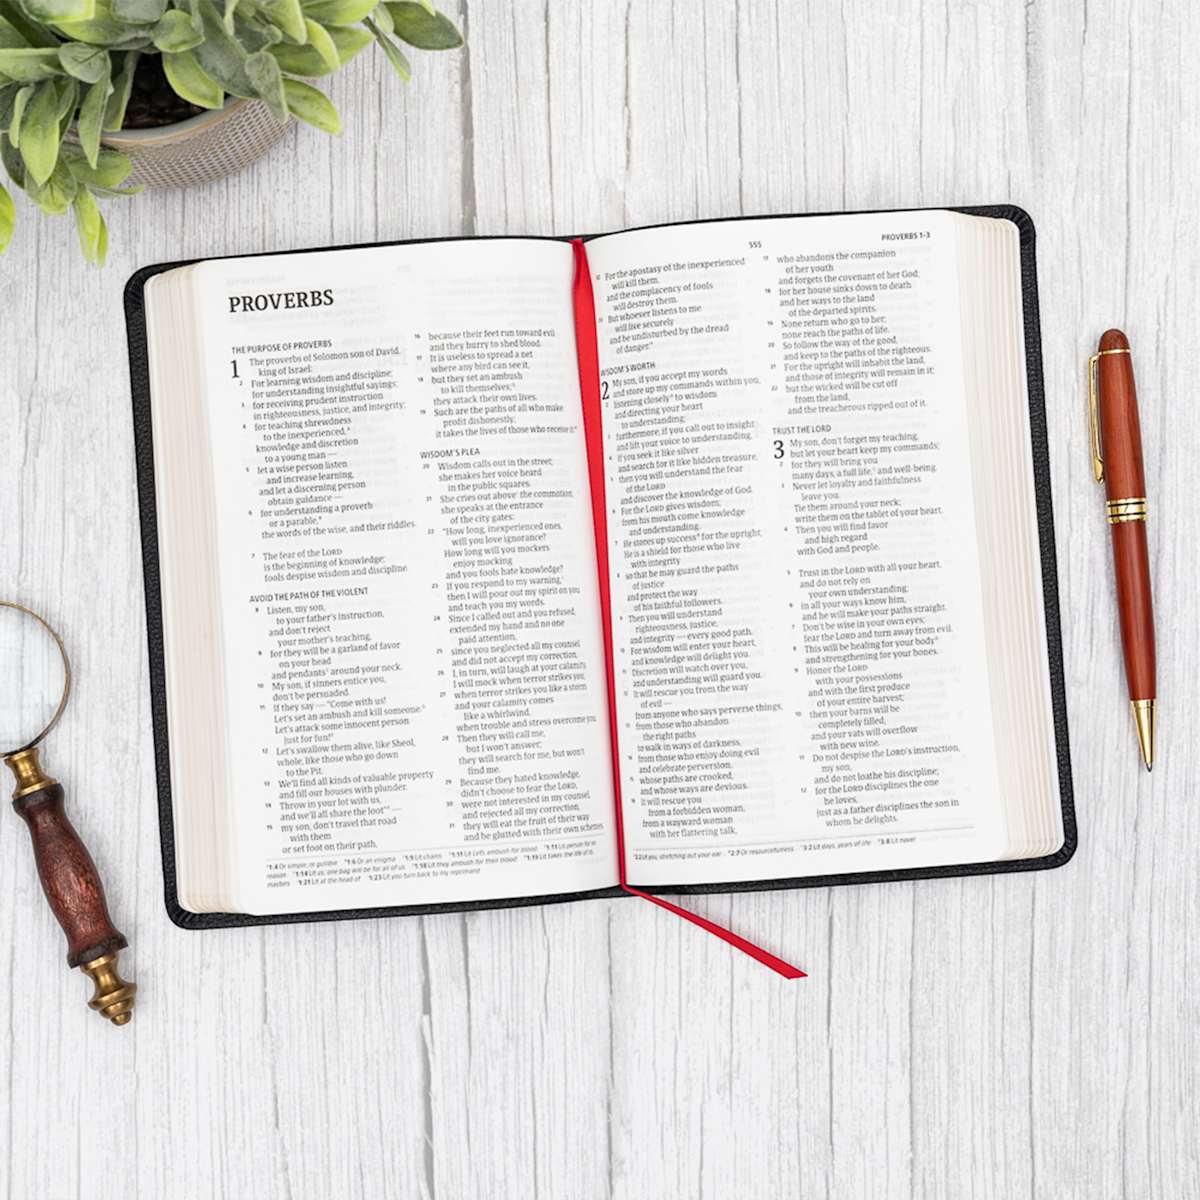 PROVERBS
THE PURPOSE OF PROVERBS
1 The proverbs of Solomon son of David,
king of Israel:
2 For learning wisdom and discipline;
for understanding insightful sayings;
3 for receiving prudent instruction
in righteousness, justice, and integrity;
4 for teaching shrewdness
to the inexperienced,
knowledge and discretion
to a young man —
5 let a wise person listen
and increase learning,
and let a discerning person
obtain guidance —
6 for understanding a proverb
or a parable,
the words of the wise, and their riddles.
7 The fear of the LORD
is the beginning of knowledge;
fools despise wisdom and discipline.
AVOID THE PATH OF THE VIOLENT
8 Listen, my son,
to your father's instruction,
and don't reject
your mother's teaching,
9 for they will be a garland of favor
on your head
and pendants around your neck.
10 My son, if sinners entice you,
don't be persuaded.
11 If they say — "Come with us!
Let's set an ambush and kill someone.
Let's attack some innocent person
just for fun!
12 Let's swallow them alive, like Sheol,
whole, like those who go down
to the Pit.
13 We'll find all kinds of valuable property
and fill our houses with plunder.
14 Throw in your lot with us,
and we'll all share the loot" —
15 my son, don't travel that road
with them
or set foot on their path,
16 because their feet run toward evil
and they hurry to shed blood.
17 It is useless to spread a net
where any bird can see it,
18 but they set an ambush
to kill themselves;
they attack their own lives.
19 Such are the paths of all who make
profit dishonestly;
it takes the lives of those who receive it.
WISDOM'S PLEA
20 Wisdom calls out in the street;
she makes her voice heard
in the public squares.
21 She cries out above the commotion;
she speaks at the entrance
of the city gates:
22 "How long, inexperienced ones,
will you love ignorance?
How long will you mockers
enjoy mocking
and you fools hate knowledge?
23 If you respond to my warning,
then I will pour out my spirit on you
and teach you my words.
24 Since I called out and you refused,
extended my hand and no one
paid attention,
25 since you neglected all my counsel
and did not accept my correction,
26 I, in turn, will laugh at your calamity.
I will mock when terror strikes you,
27 when terror strikes you like a storm
and your calamity comes
like a whirlwind,
when trouble and stress overcome you.
28 Then they will call me,
but I won't answer;
they will search for me, but won't
find me.
29 Because they hated knowledge,
didn't choose to fear the LORD,
30 were not interested in my counsel,
and rejected all my correction,
31 they will eat the fruit of their way
and be glutted with their own schemes.
1:4 Or simple, or gullible 1:6 Or an enigma 1:9 Lit chains 1:11 Lit Let's ambush for blood 1:11 Lit person for no
reason 1:14 Lit us; one bag will be for all of us 1:18 Lit they ambush for their blood 1:19 Lit takes the life of its
masters 1:21 Lit at the head of 1:23 Lit you turn back to my reprimand
555
PROVERBS 1-3
32 For the apostasy of the inexperienced
will kill them,
and the complacency of fools
will destroy them.
33 But whoever listens to me
will live securely
and be undisturbed by the dread
of danger."
WISDOM'S WORTH
2 My son, if you accept my words
and store up my commands within you,
2 listening closely to wisdom
and directing your heart
to understanding;
3 furthermore, if you call out to insight
and lift your voice to understanding,
4 if you seek it like silver
and search for it like hidden treasure,
5 then you will understand the fear
of the LORD
and discover the knowledge of God.
6 For the LORD gives wisdom;
from his mouth come knowledge
and understanding.
7 He stores up success for the upright;
He is a shield for those who live
with integrity
8 so that he may guard the paths
of justice
and protect the way
of his faithful followers.
9 Then you will understand
righteousness, justice,
and integrity — every good path.
10 For wisdom will enter your heart,
and knowledge will delight you.
11 Discretion will watch over you,
and understanding will guard you.
12 It will rescue you from the way
of evil —
from anyone who says perverse things,
13 from those who abandon
the right paths
to walk in ways of darkness,
14 from those who enjoy doing evil
and celebrate perversion,
15 whose paths are crooked,
and whose ways are devious.
16 It will rescue you
from a forbidden woman,
from a wayward woman
with her flattering talk,
17 who abandons the companion
of her youth
and forgets the covenant of her God;
18 for her house sinks down to death
and her ways to the land
of the departed spirits.
19 None return who go to her;
none reach the paths of life.
20 So follow the way of the good,
and keep to the paths of the righteous.
21 For the upright will inhabit the land,
and those of integrity will remain in it;
22 but the wicked will be cut off
from the land,
and the treacherous ripped out of it.
TRUST THE LORD
3 My son, don't forget my teaching,
but let your heart keep my commands;
2 for they will bring you
many days, a full life, and well-being.
3 Never let loyalty and faithfulness
leave you.
Tie them around your neck;
write them on the tablet of your heart.
4 Then you will find favor
and high regard
with God and people.
5 Trust in the LORD with all your heart,
and do not rely on
your own understanding;
6 in all your ways know him,
and he will make your paths straight.
7 Don't be wise in your own eyes;
fear the LORD and turn away from evil.
8 This will be healing for your body
and strengthening for your bones.
9 Honor the LORD
with your possessions
and with the first produce
of your entire harvest;
10 then your barns will be
completely filled,
and your vats will overflow
with new wine.
11 Do not despise the LORD's instruction,
my son,
and do not loathe his discipline;
12 for the LORD disciplines the one
he loves,
just as a father disciplines the son in
whom he delights.
2:2 Lit you, stretching out your ear 2:7 Or resourcefulness 3:2 Lit days, years of life 3:8 Lit navel